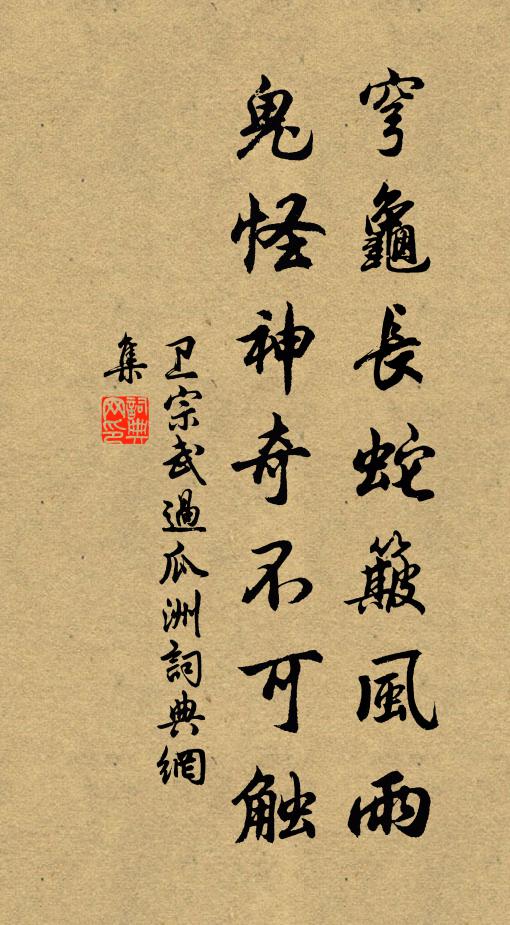 穹龜長蛇簸風雨
鬼怪神奇不可触
卫宗武過瓜洲詞典網
集
詞典
网印